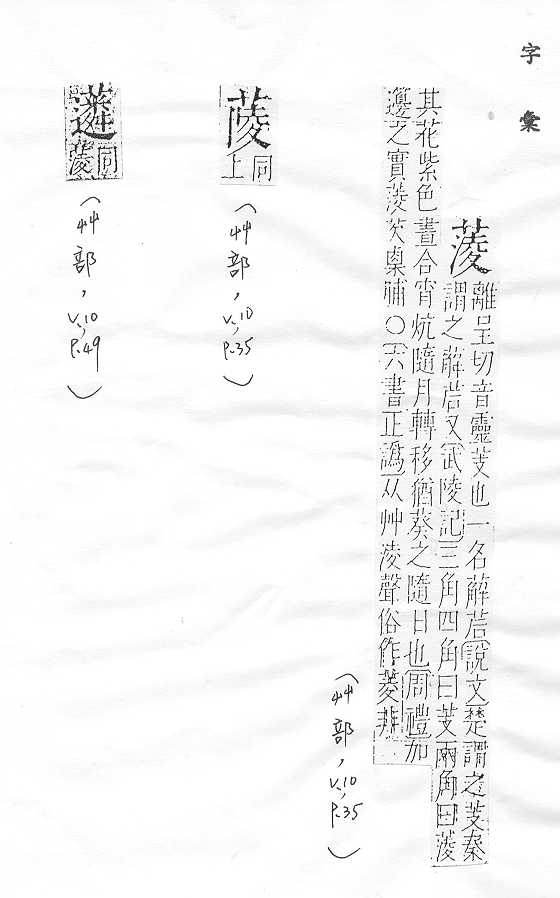 字彙
蔆
離呈切音靈芰也一名薢茩說文楚謂之芰秦
謂之薢茩又武陵記三角四角曰芰兩角曰蔆
其花紫色晝合宵炕隨月轉移猶葵之隨日也周禮加
籩之實蔆芡㮚脯〇六書正譌从艸淩聲俗作菱非
(艸部,V.10, P.35)
同
上
(艸部,V.10, P.35)
同
蔆
(艸部,V.10, P.49)